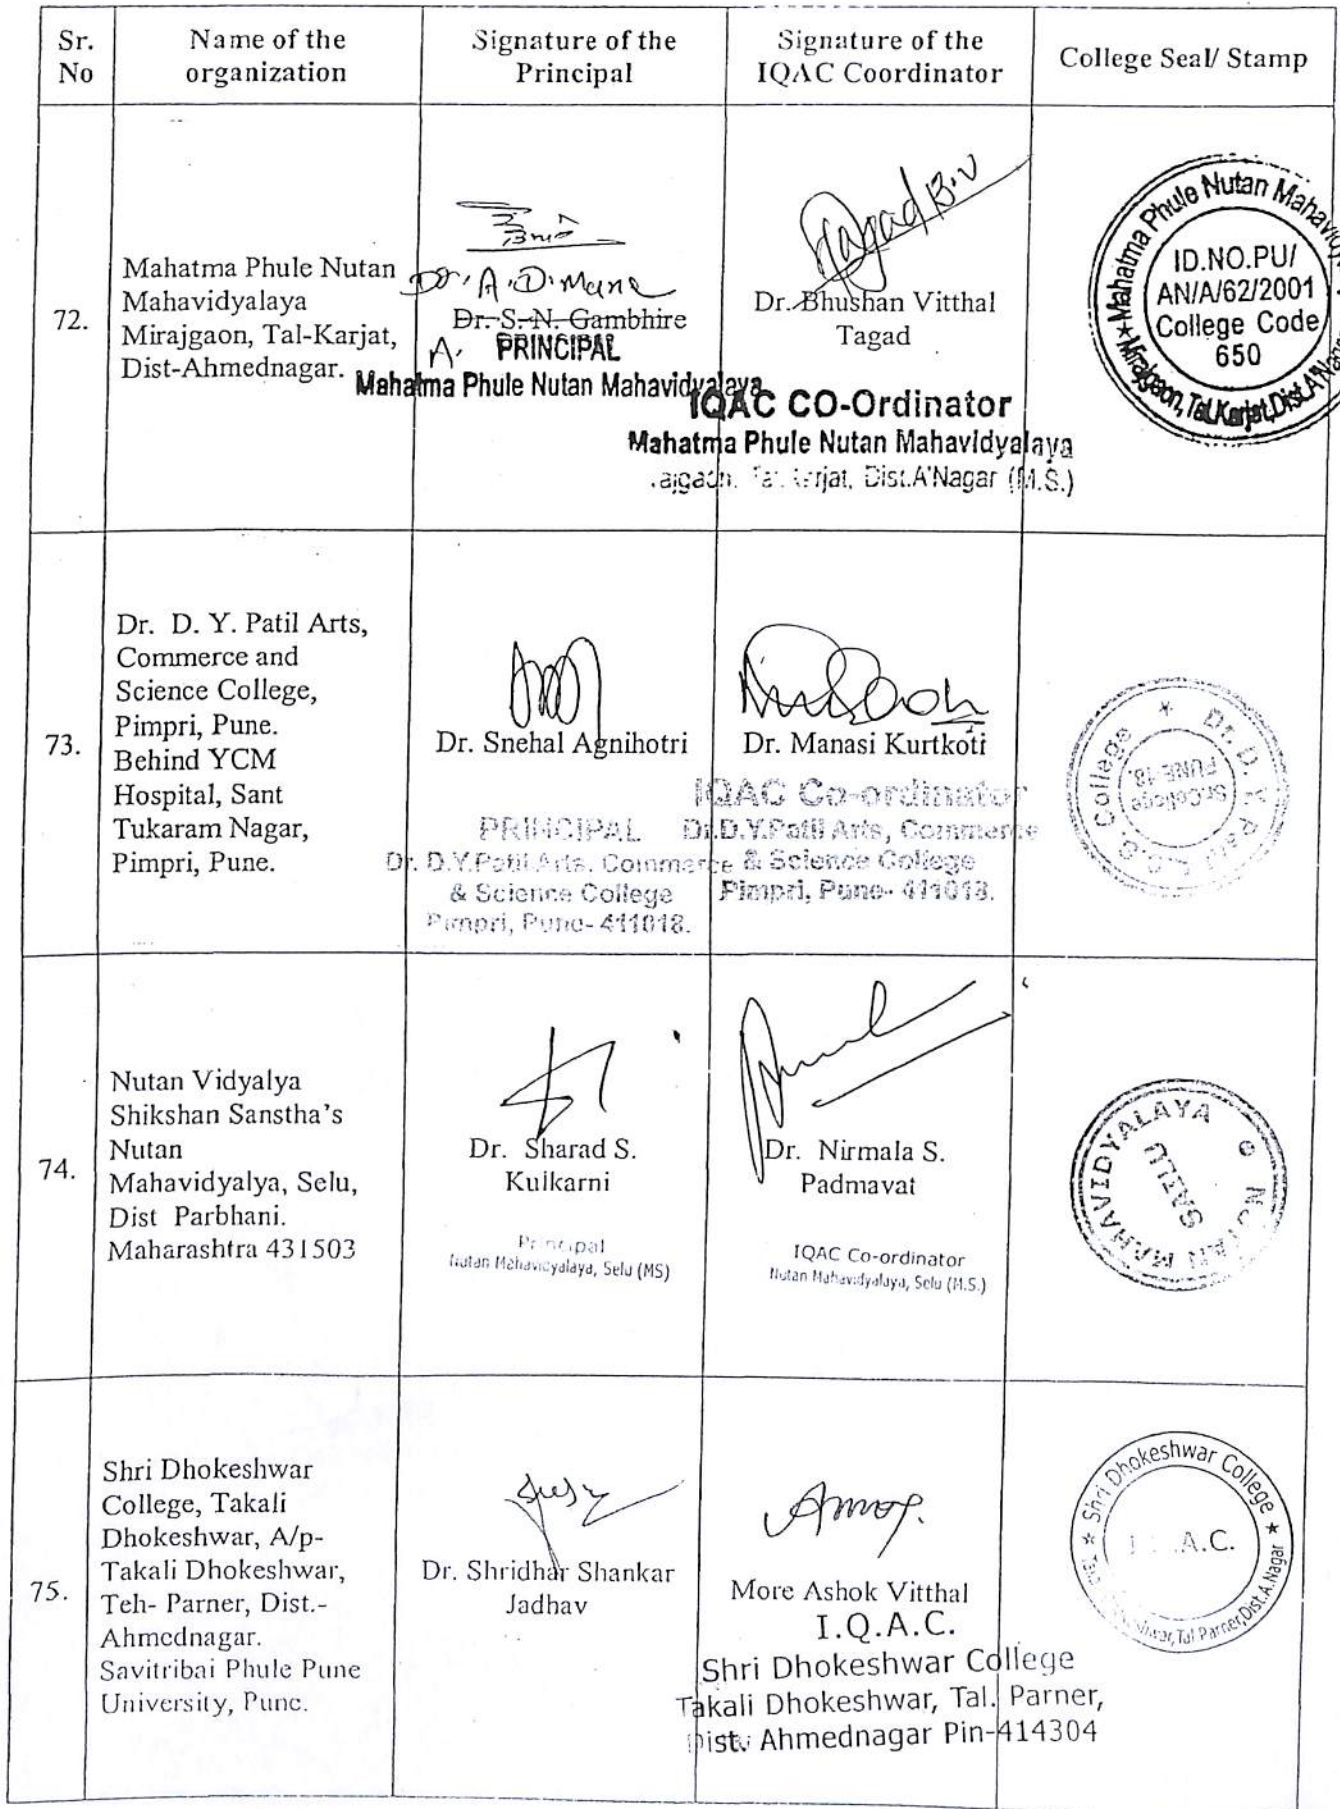 Sr.
No
Name of the
organization
Signature of the
Principal
Signature of the
IQAC Coordinator
College Seal/ Stamp
72.
Mahatma Phule Nutan
Mahavidyalaya
Mirajgaon, Tal-Karjat,
Dist-Ahmednagar.
Dr. A. D. Mane
Dr. S. N. Gambhire
PRINCIPAL
Mahatma Phule Nutan Mahavidyalaya
Tagad B.V
Dr. Bhushan Vitthal
Tagad
IQAC CO-Ordinator
Mahatma Phule Nutan Mahavidyalaya
Dist.A'Nagar (M.S.)
Mahatma Phule Nutan
ID.NO.PU/
AN/A/62/2001
College Code
650
Mirajgaon, Tal.Karjat, Dist.A'Nagar
73.
Dr. D. Y. Patil Arts,
Commerce and
Science College,
Pimpri, Pune.
Behind YCM
Hospital, Sant
Tukaram Nagar,
Pimpri, Pune.
Dr. Snehal Agnihotri
PRINCIPAL
Dr. D.Y.Patil Arts, Commerce
& Science College
Pimpri, Pune- 411018.
Dr. Manasi Kurtkoti
IQAC Co-ordinator
Dr.D.Y.Patil Arts, Commerce
& Science College
Pimpri, Pune- 411018.
Dr. D. Y. Patil A.C.S. College
Sr.College
PUNE-18.
74.
Nutan Vidyalya
Shikshan Sanstha's
Nutan
Mahavidyalya, Selu,
Dist Parbhani.
Maharashtra 431503
Dr. Sharad S.
Kulkarni
Principal
Nutan Mahavidyalaya, Selu (MS)
Dr. Nirmala S.
Padmavat
IQAC Co-ordinator
Nutan Mahavidyalaya, Selu (M.S.)
NUTAN MAHAVIDYALAYA
SAILU
75.
Shri Dhokeshwar
College, Takali
Dhokeshwar, A/p-
Takali Dhokeshwar,
Teh- Parner, Dist.-
Ahmednagar.
Savitribai Phule Pune
University, Pune.
Dr. Shridhar Shankar
Jadhav
More Ashok Vitthal
I.Q.A.C.
Shri Dhokeshwar College
Takali Dhokeshwar, Tal. Parner,
Dist. Ahmednagar Pin-414304
Shri Dhokeshwar College
A.C.
Tal Parner, Dist.A.Nagar